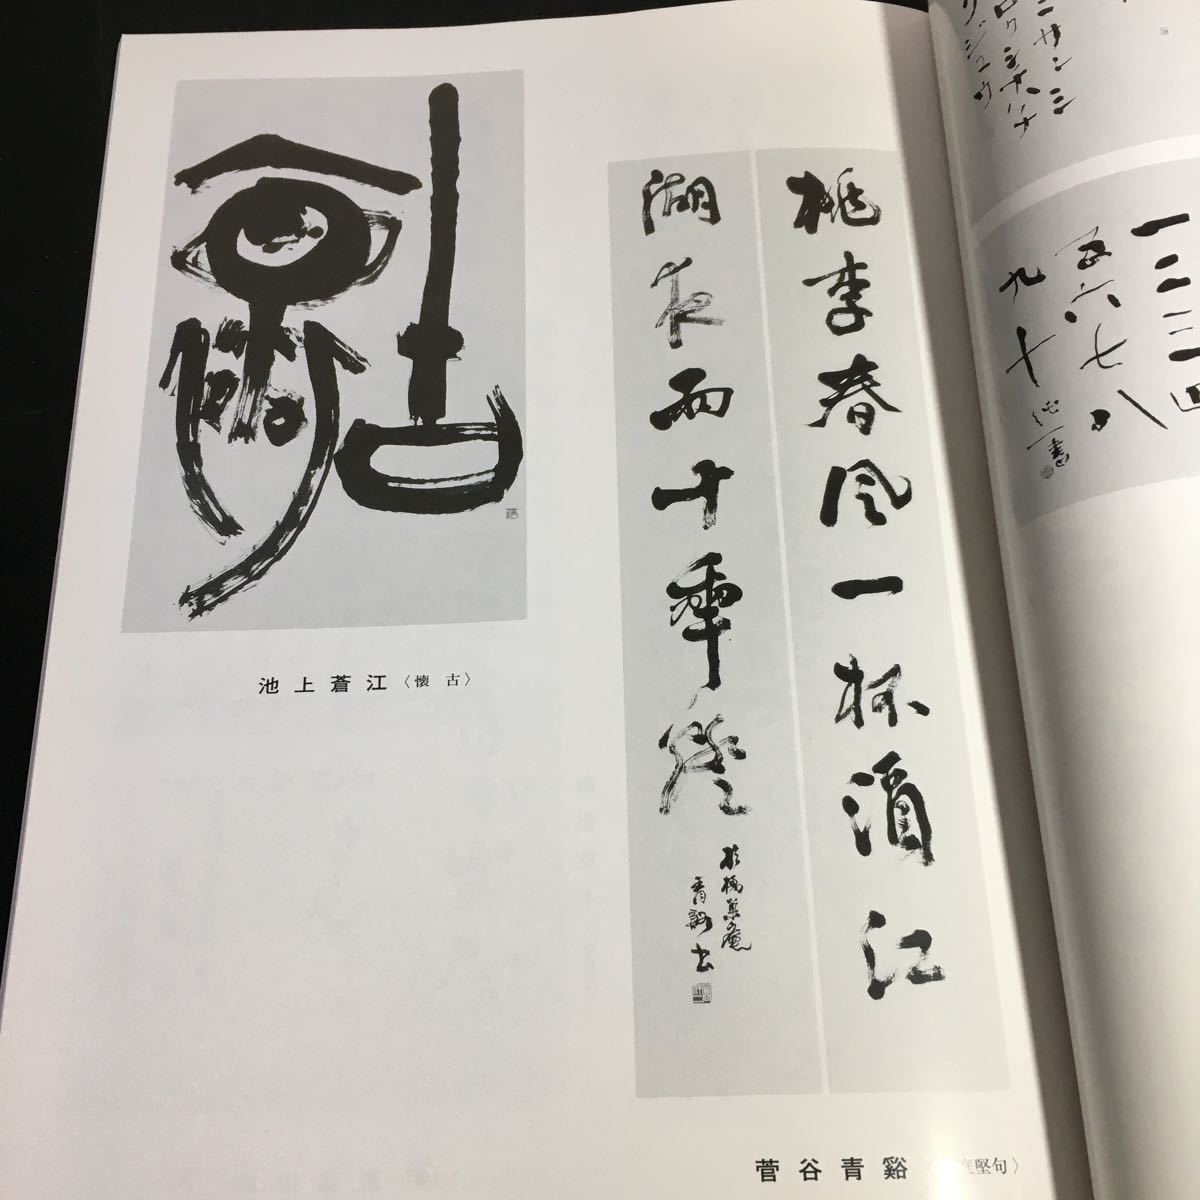 桃李春風一杯酒江
湖夜雨十年燈
青谿書
懐古
池上蒼江〈懐古〉
菅谷青谿
庭堅句〉
ニサンミ
ロクシチハチ
クジュウ
一二三四
五六七八
九十